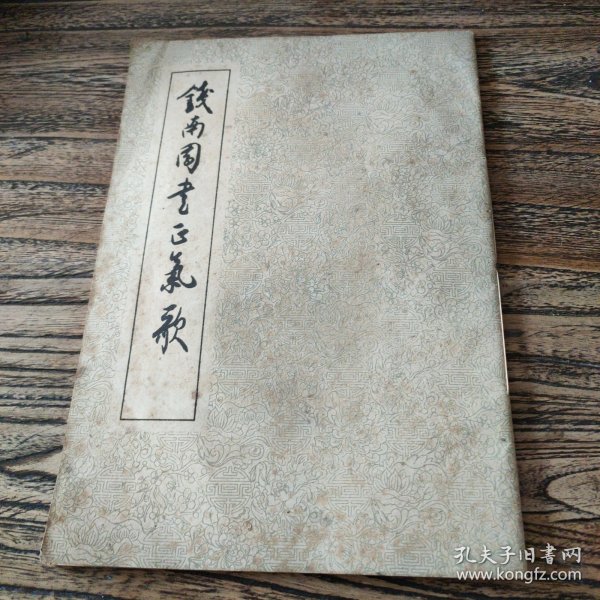 錢南園書正氣歌
孔夫子旧书网
www.kongfz.com